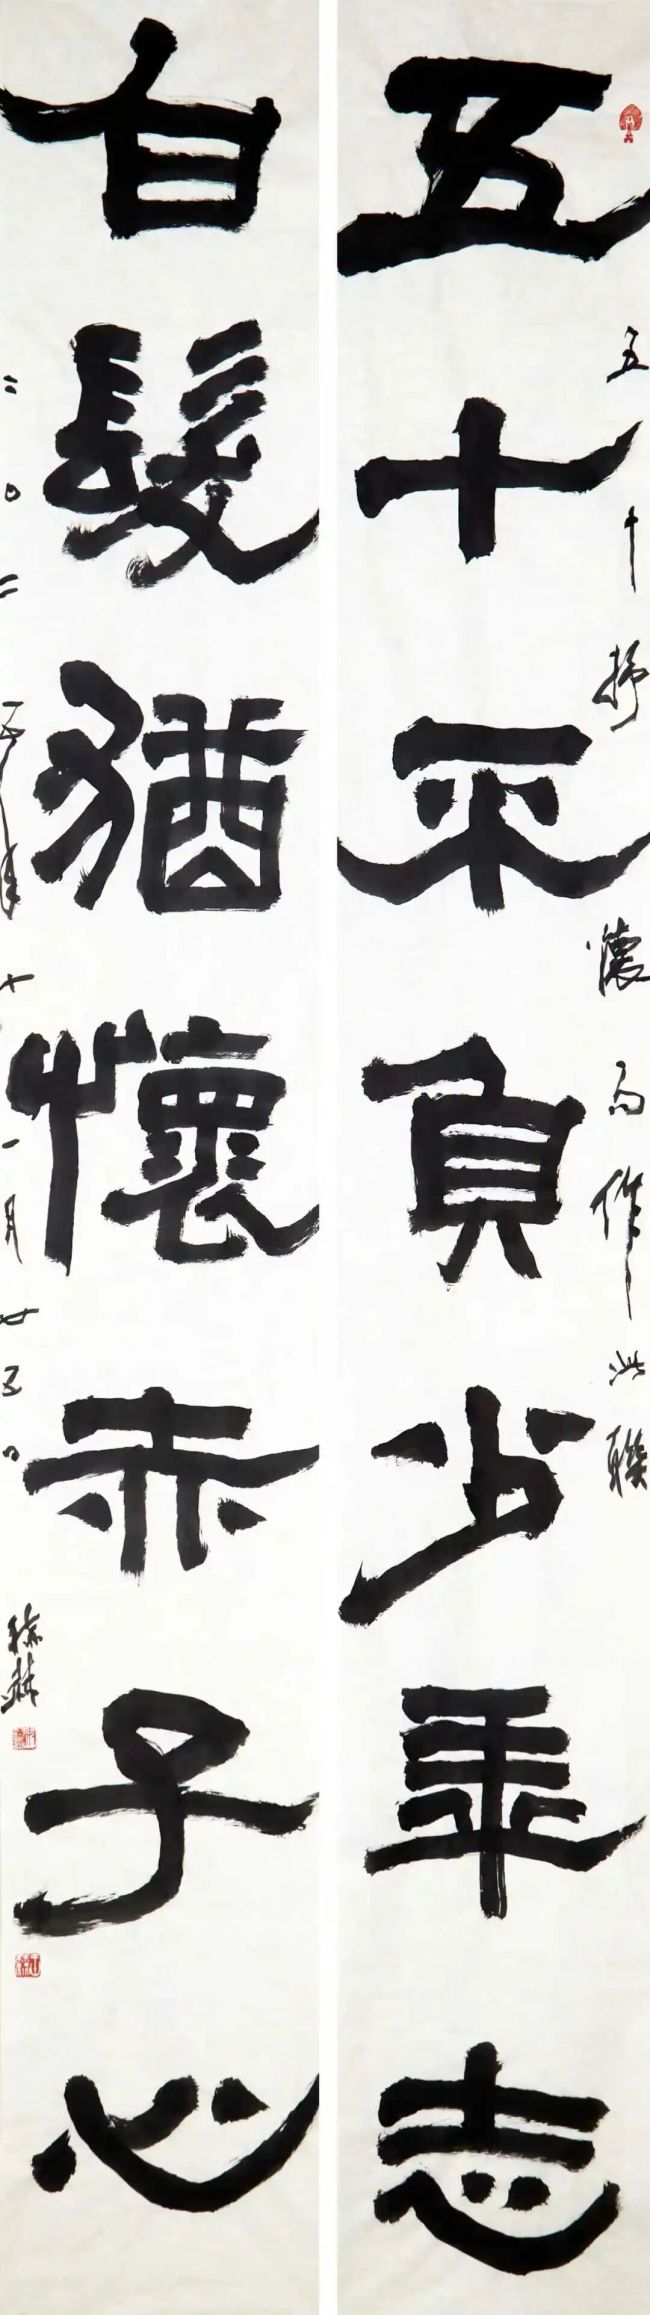 五十平負少年志
五十抒懷而作此聯
白髮猶懷赤子心
二〇二一年十一月廿五日